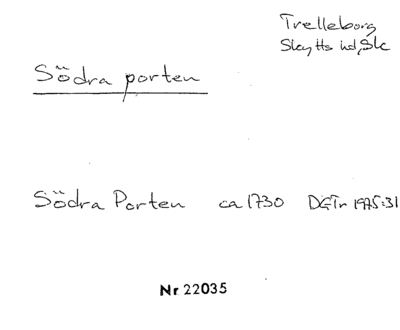 Trelleborg
Skytts hd, Sk
Södra porten
Södra Porten ca 1730 DGTr 1975:31
Nr 22035